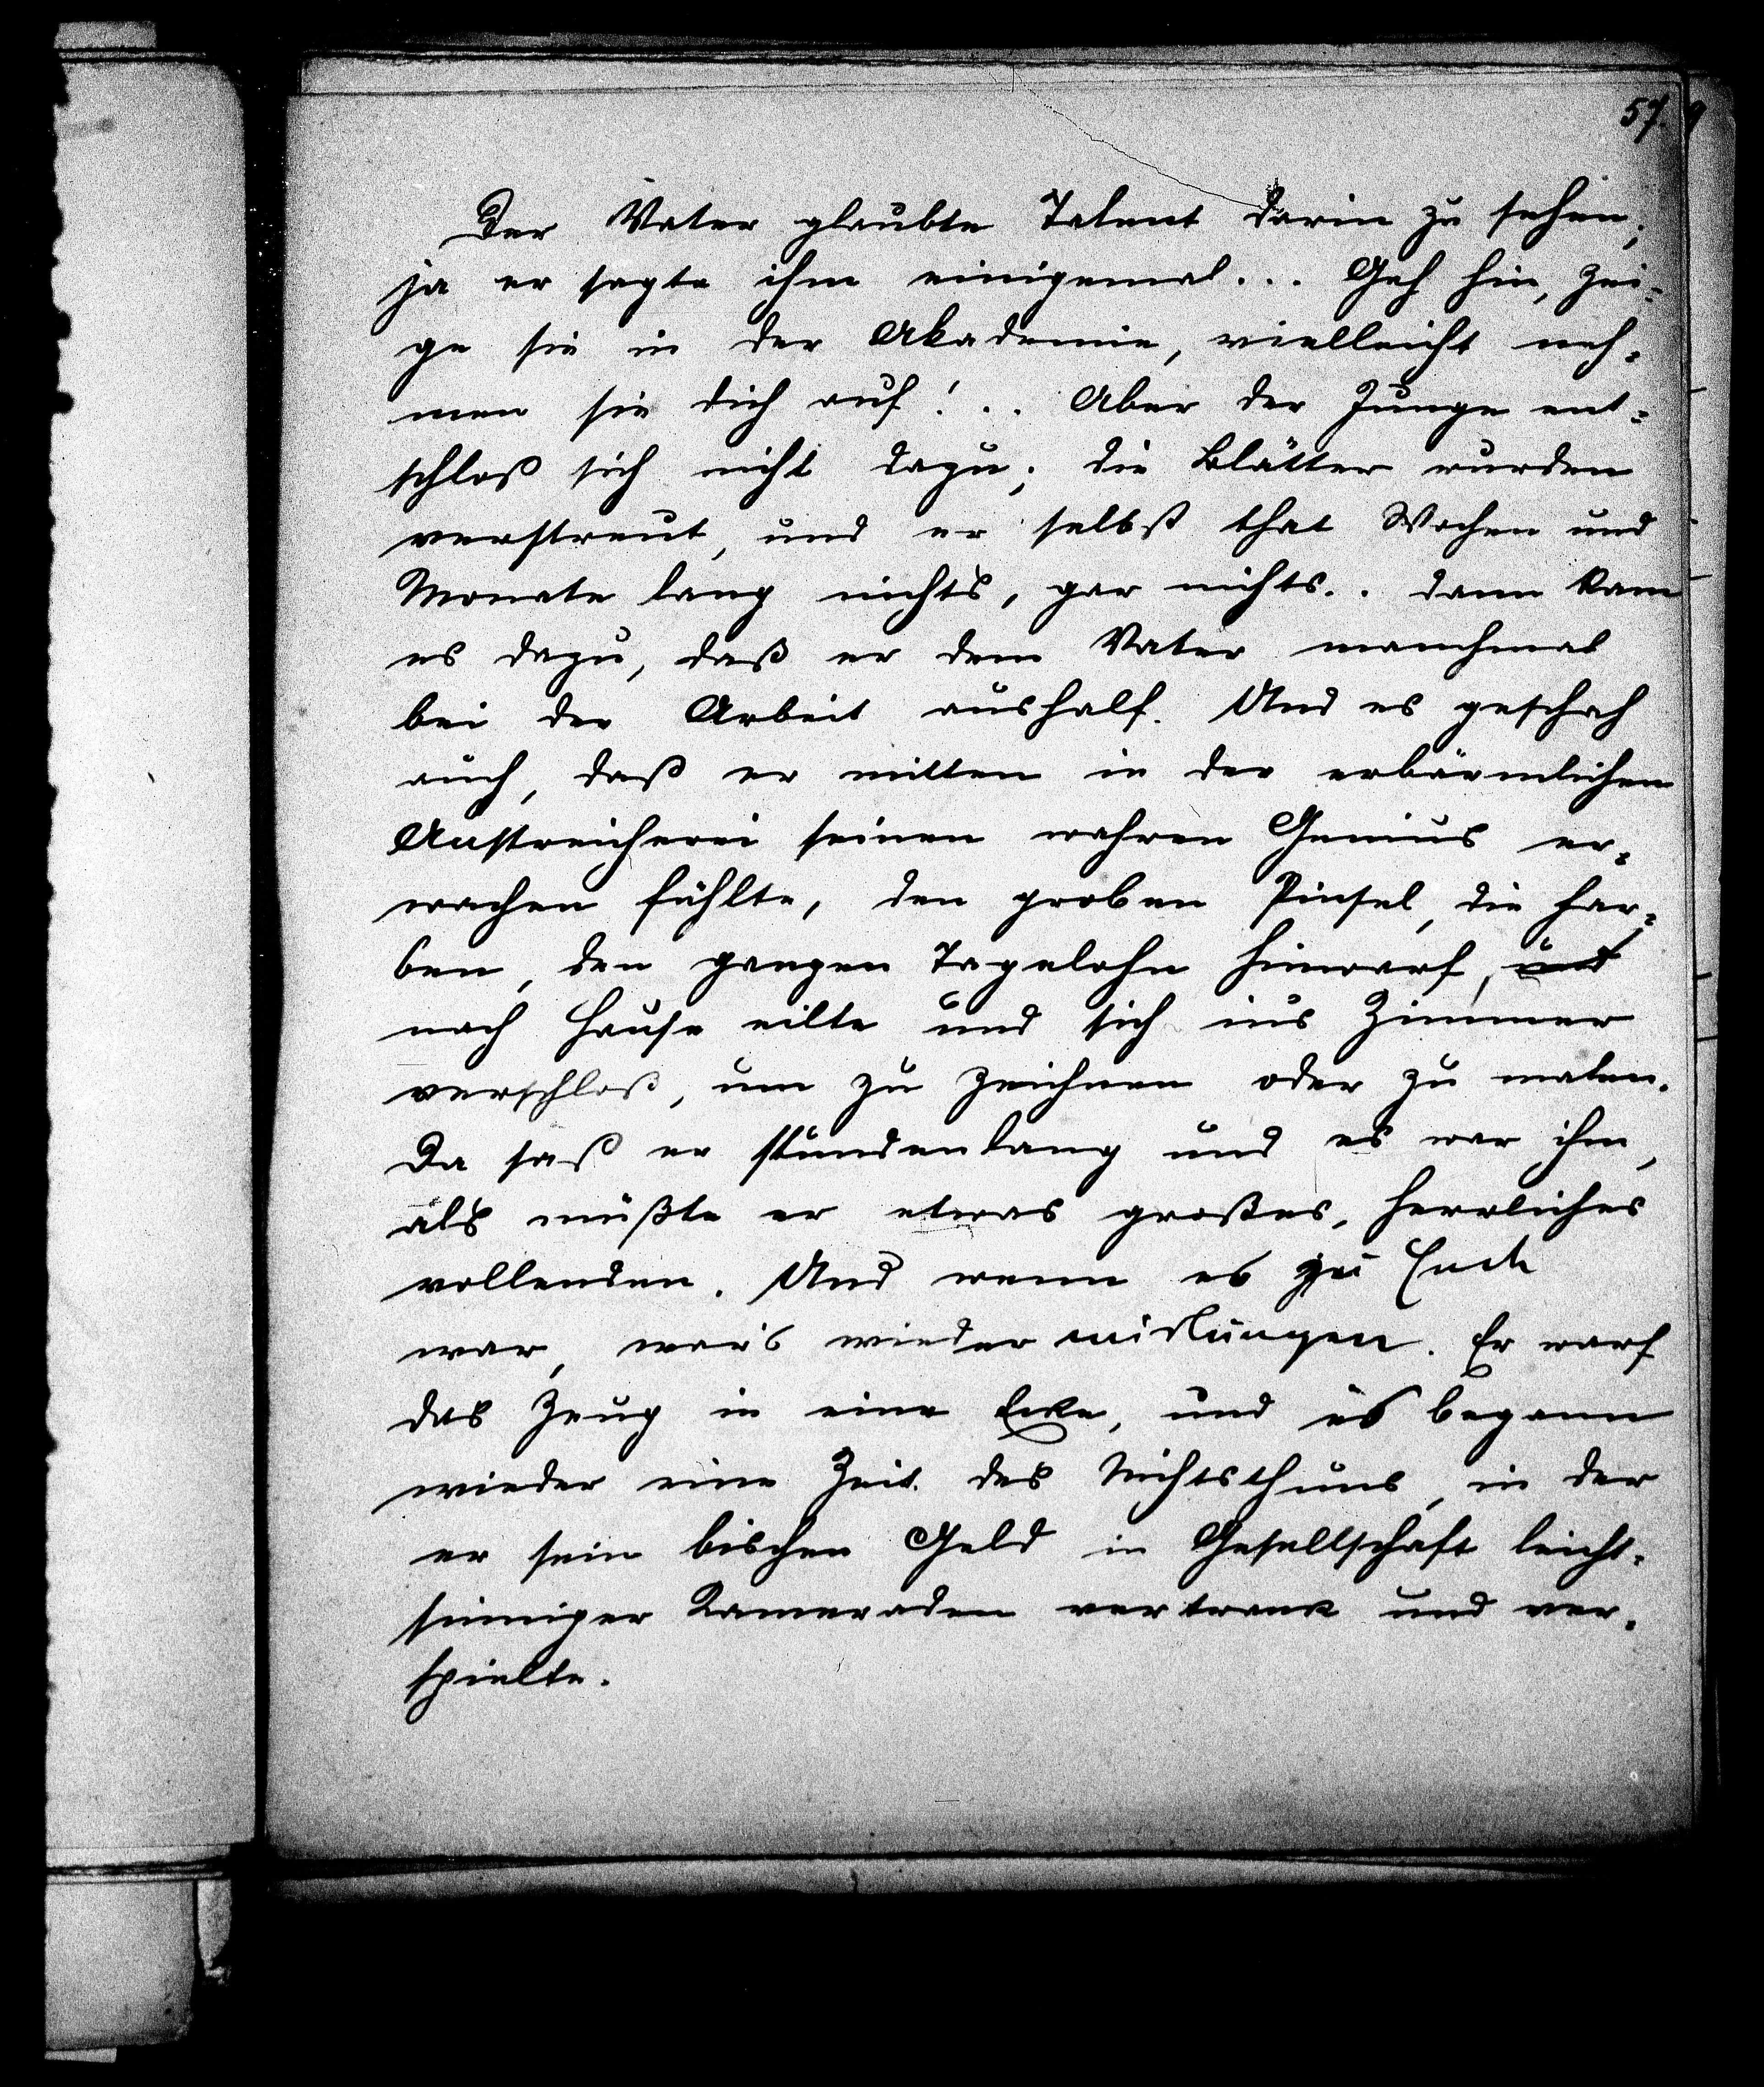 57.
Der Vater glaubte Talent darin zu sehen;
ja er sagte ihm einigemal... Geh hin, zei-
ge sie in der Akademie, vielleicht neh-
men sie dich auf!.. Aber der Junge ent-
schloß sich nicht dazu; die Blätter wurden
verstreut, und er selbst that Wochen und
Monate lang nichts, gar nichts.. dann kam
es dazu, daß er dem Vater manchmal
bei der Arbeit aushalf. Und es geschah
auch, daß er mitten in der erbärmlichen
Anstreicherei seinen wahren Genius er-
wachen fühlte, den groben Pinsel, die Far-
ben, den ganzen Tagelohn hinwarf, und
nach Hause eilte und sich ins Zimmer
verschloß, um zu zeichnen oder zu malen.
Da saß er stundenlang und es war ihm,
als müßte er etwas großes, herrliches
vollenden. Und wenn es zu Ende
war, war's wieder mislungen. Er warf
das Zeug in eine Ecke, und es begann
wieder eine Zeit des Nichtsthuns, in der
er sein bischen Geld in Gesellschaft leicht-
sinniger Kameraden vertrank und ver-
spielte.